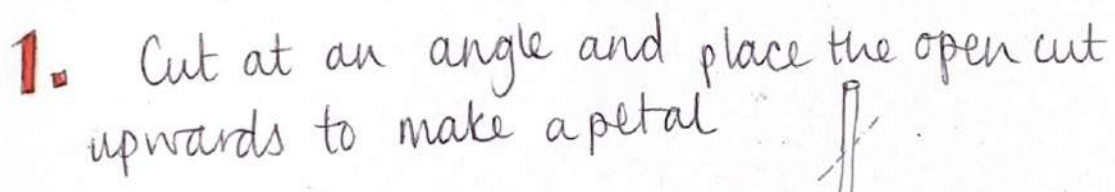 1. Cut at an angle and place the open cut
upwards to make a petal